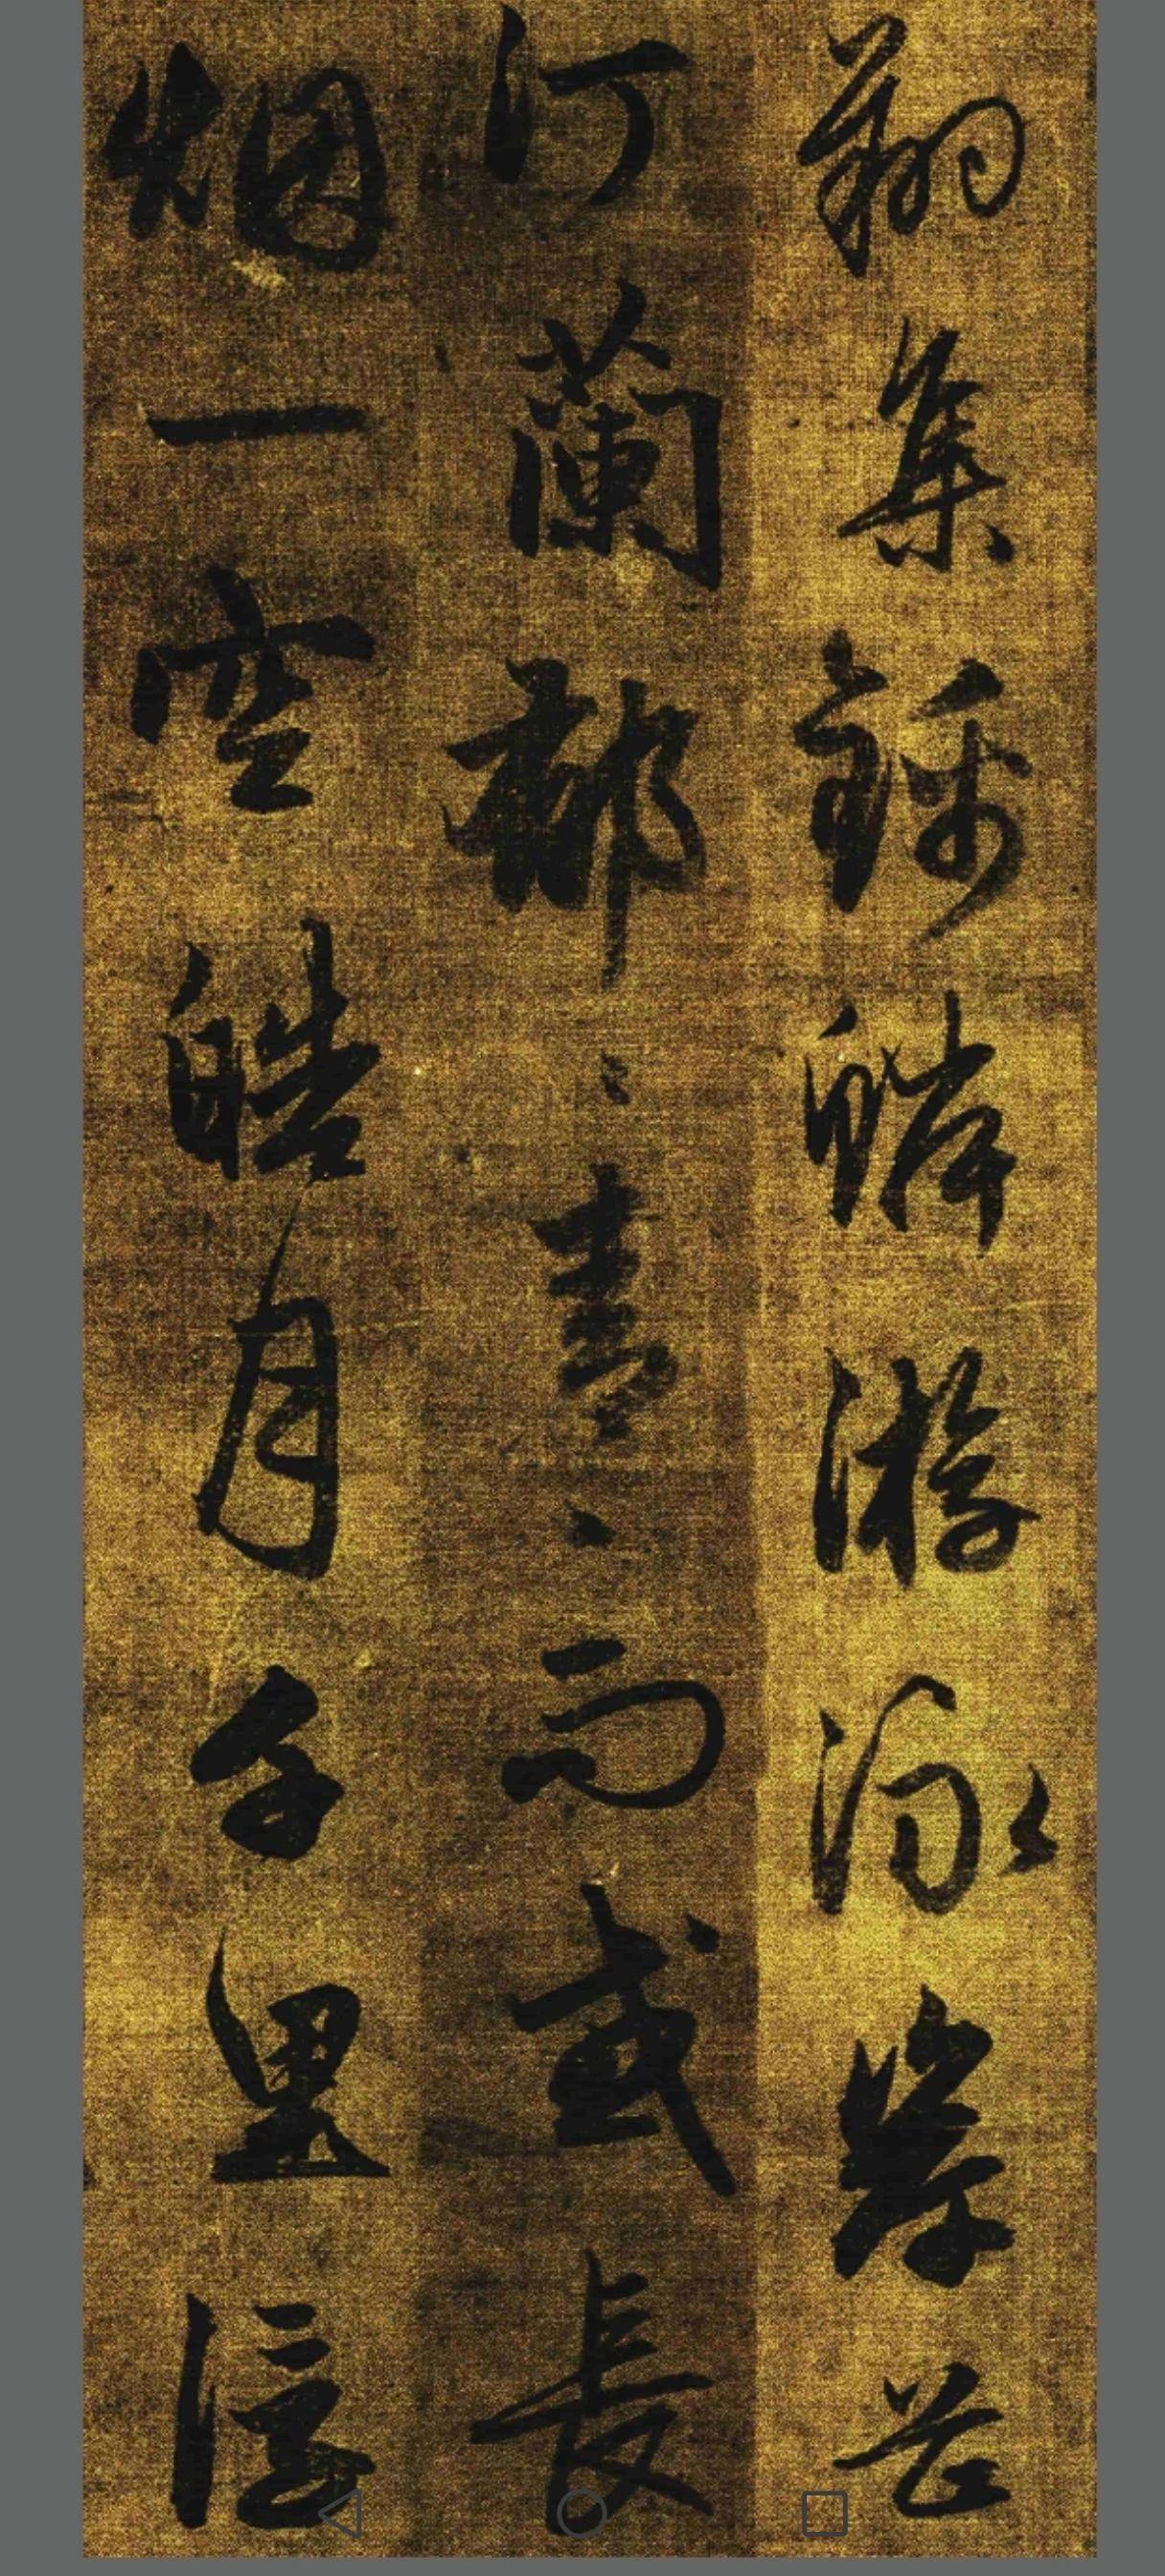 翔集錦鱗游泳岸芷
汀蘭郁〻青〻而或長
烟一空皓月千里浮